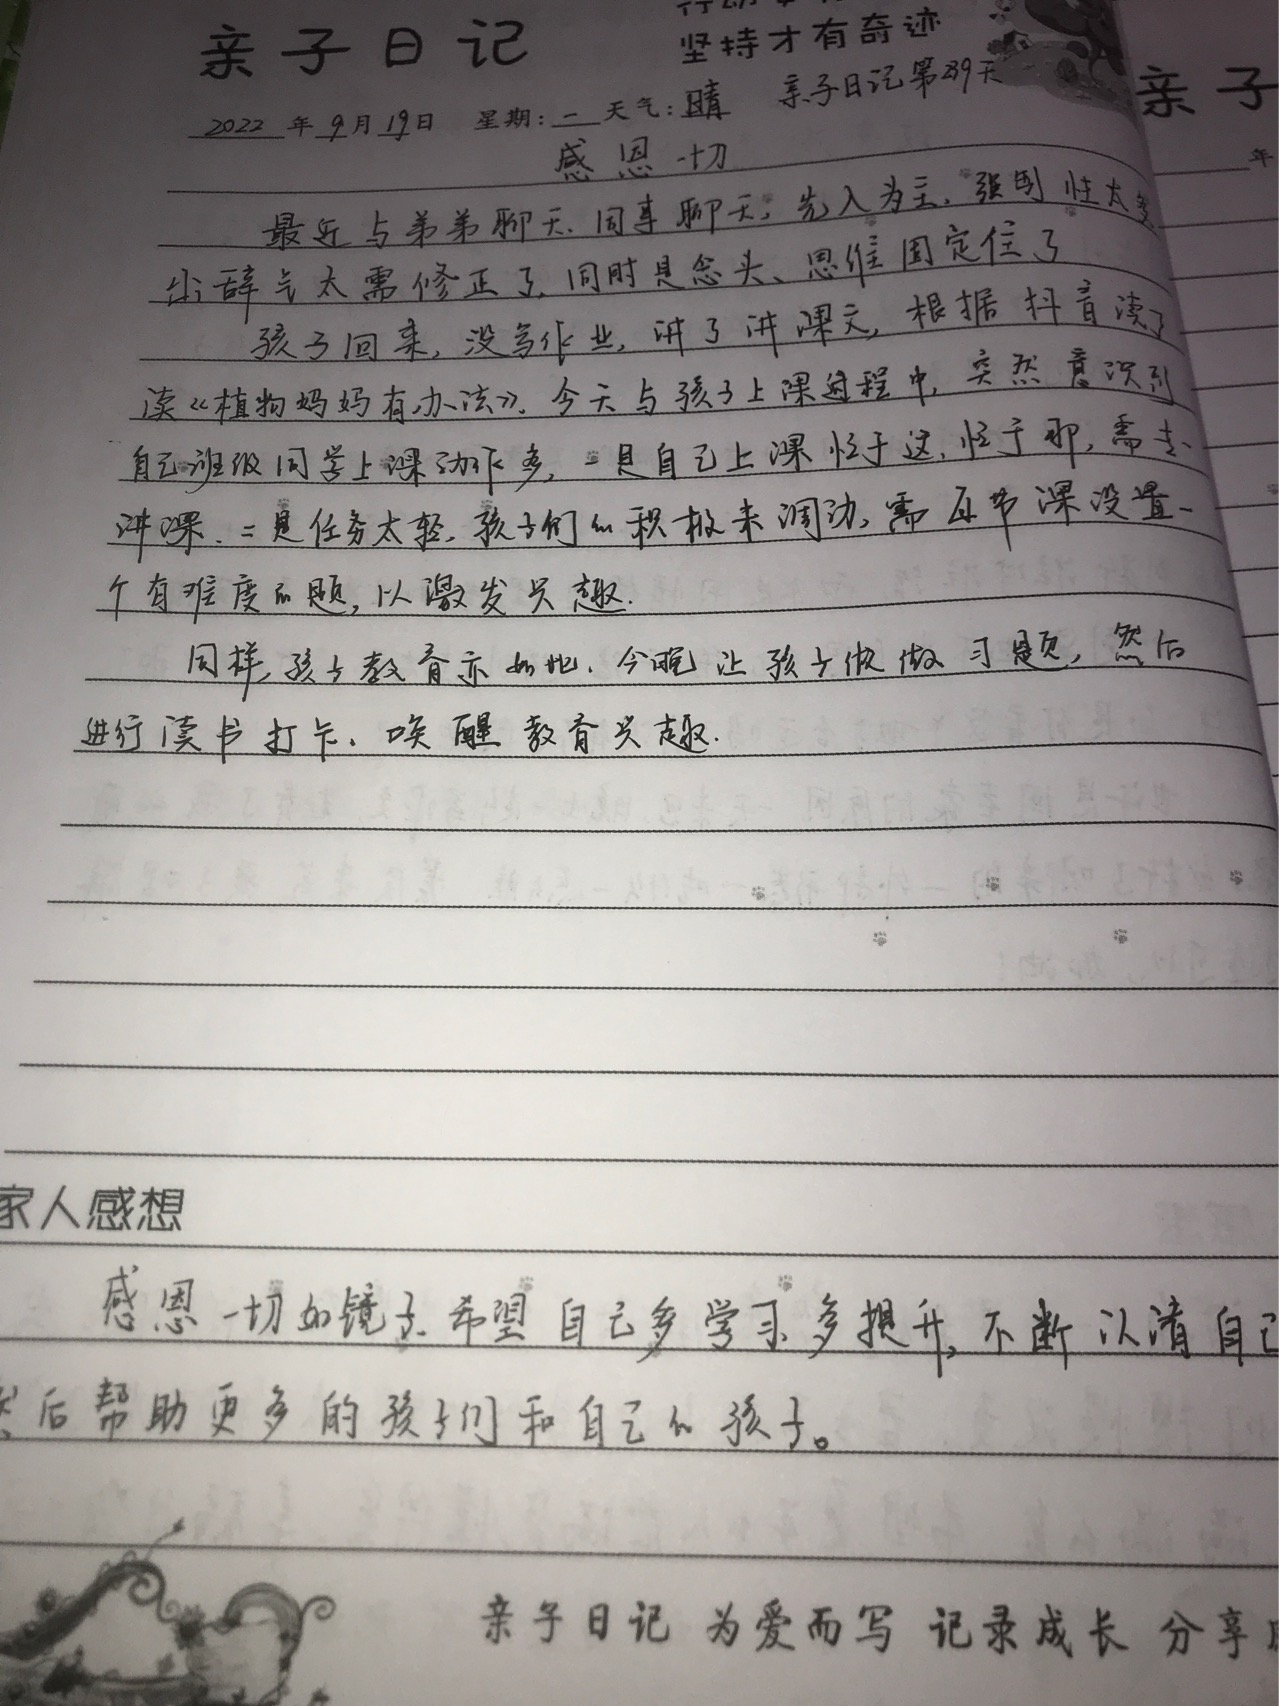 亲子日记
坚持才有奇迹
亲子日记第239天
2022年9月19日 星期:一 天气:晴
感恩一切
最近与弟弟聊天、同事聊天,先入为主,强制性太多
出辞气太需修正了,同时是念头、思维固定住了
孩子回来,没写作业,讲了讲课文,根据抖音读了
读《植物妈妈有办法》。今天与孩子上课过程中,突然意识到
自己班级同学上课动作多,一是自己上课忙于这,忙于那,需去
讲课.二是任务太轻,孩子们的积极未调动,需每节课设置一
个有难度的题,以激发兴趣.
同样,孩子教育亦如此.今晚让孩子做做习题,然后
进行读书打卡、唤醒教育兴趣.
家人感想
感恩一切如镜子、希望自己多学习、多提升,不断认清自己
然后帮助更多的孩子们和自己的孩子。
亲子日记 为爱而写 记录成长 分享
亲子
年